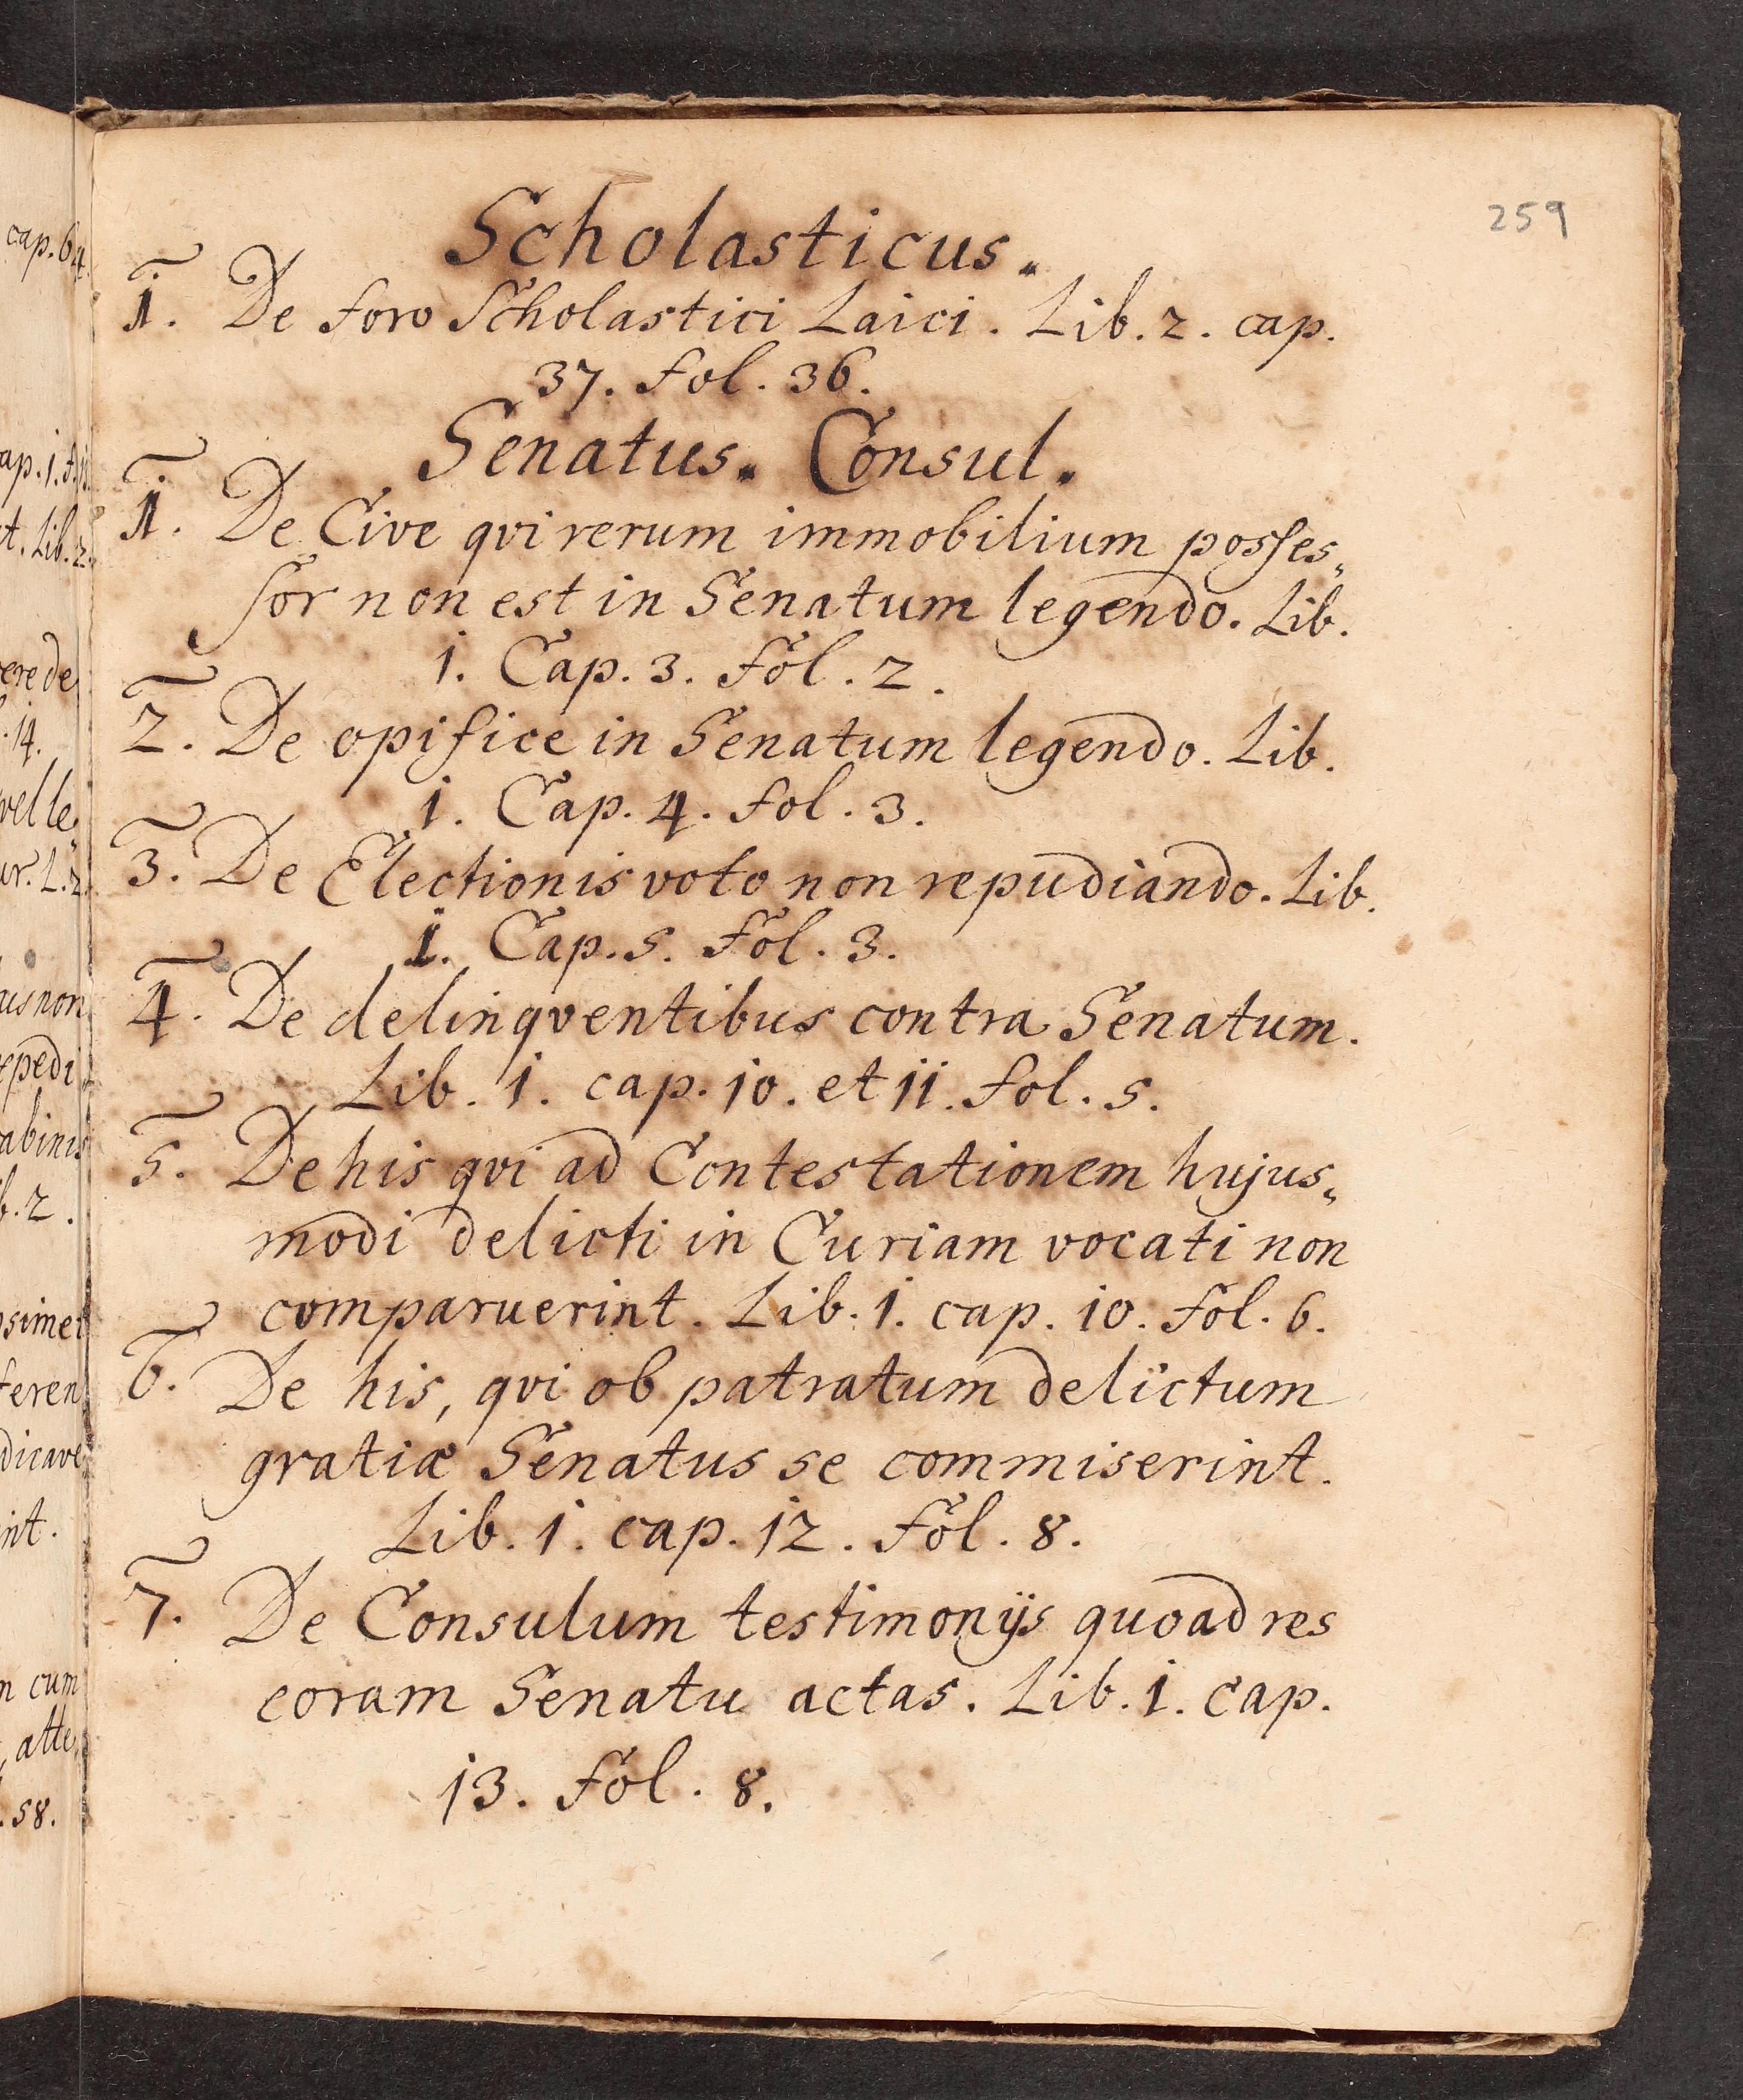 259
Scholasticus.
1. De foro Scholastici Laici. Lib. 2. cap.
37. fol. 36.
Senatus. Consul.
1. De Cive qvi rerum immobilium posses„
sor non est in Senatum legendo. Lib.
1. Cap. 3. fol. 2.
2. De opifice in Senatum legendo. Lib.
1. Cap. 4. fol. 3.
3. De Electionis voto non repudiando. Lib.
1. Cap. 5. fol. 3.
4. De delinqventibus contra Senatum.
Lib. 1. cap. 10. et 11. fol. 5.
5. De his qvi ad Contestationem hujus„
modi delicti in Curiam vocati non
comparuerint. Lib. 1. cap. 10. fol. 6.
6. De his, qvi ob patratum delictum
gratiæ Senatus se commiserint.
Lib. 1. cap. 12. fol. 8.
7. De Consulum testimonijs quoad res
coram Senatu actas. Lib. 1. cap.
13. fol. 8.